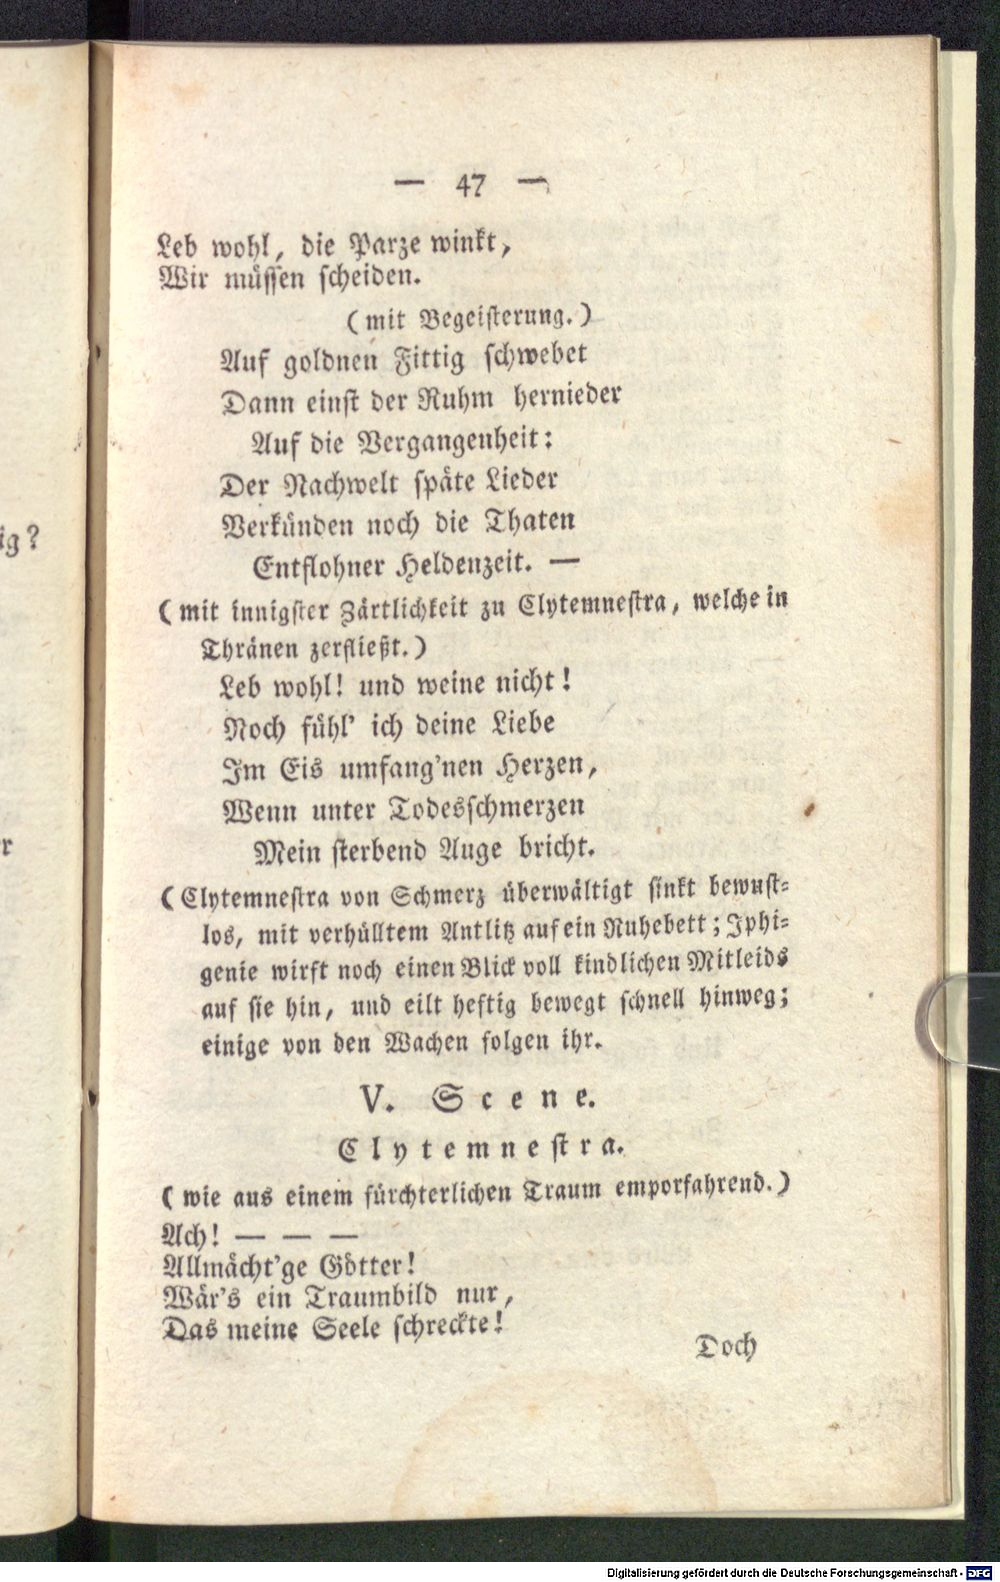 — 47 —
Leb wohl, die Parze winkt,
Wir müssen scheiden.
(mit Begeisterung.)
Auf goldnen Fittig schwebet
Dann einst der Ruhm hernieder
Auf die Vergangenheit:
Der Nachwelt späte Lieder
Verkünden noch die Thaten
Entflohner Heldenzeit. —
(mit innigster Zärtlichkeit zu Clytemnestra, welche in
Thränen zerfließt.)
Leb wohl! und weine nicht!
Noch fühl' ich deine Liebe
Im Eis umfang'nen Herzen,
Wenn unter Todesschmerzen
Mein sterbend Auge bricht.
(Clytemnestra von Schmerz überwältigt sinkt bewust-
los, mit verhülltem Antlitz auf ein Ruhebett; Iphi-
genie wirft noch einen Blick voll kindlichen Mitleids
auf sie hin, und eilt heftig bewegt schnell hinweg;
einige von den Wachen folgen ihr.
V. Scene.
Clytemnestra.
(wie aus einem fürchterlichen Traum emporfahrend.)
Ach! — — —
Allmächt'ge Götter!
Wär's ein Traumbild nur,
Das meine Seele schreckte!
Doch
ig?
r
Digitalisierung gefördert durch die Deutsche Forschungsgemeinschaft - DFG